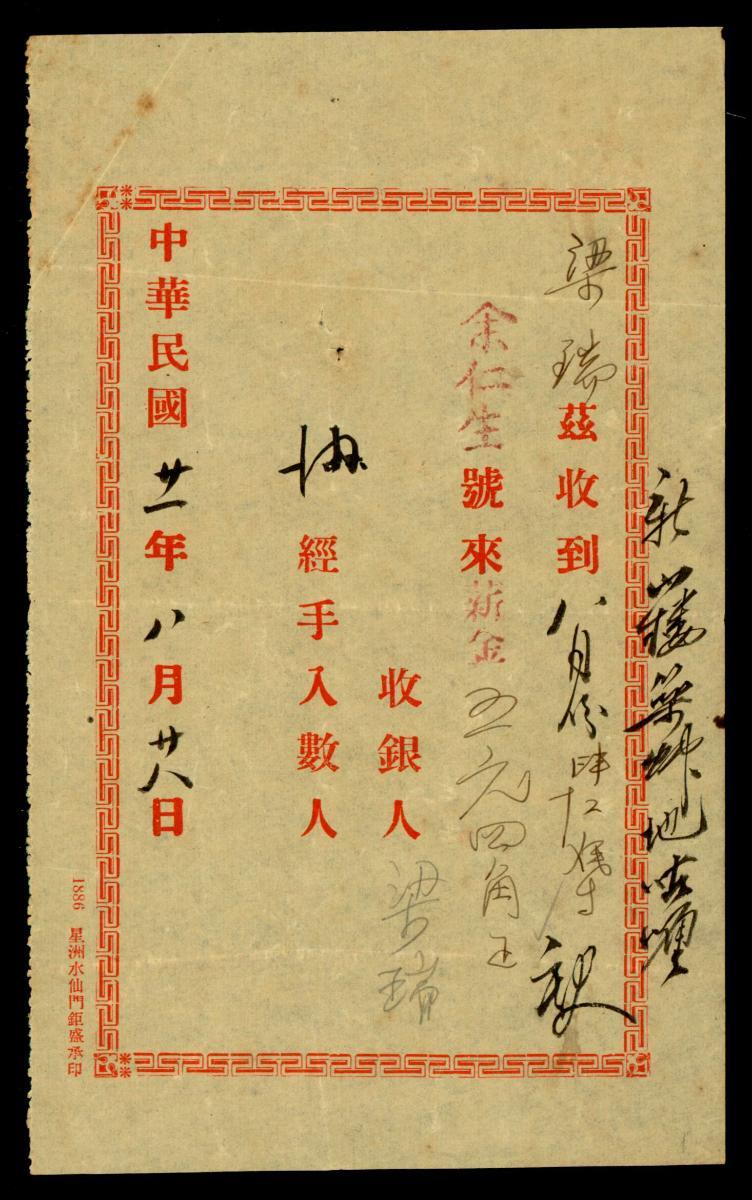 新 樓 地
梁瑞茲收到八月份
余仁生號來薪金五元四角正
收銀人梁瑞
經手入數人
中華民國廿一年八月廿八日
1886 星洲水仙門鉅盛承印